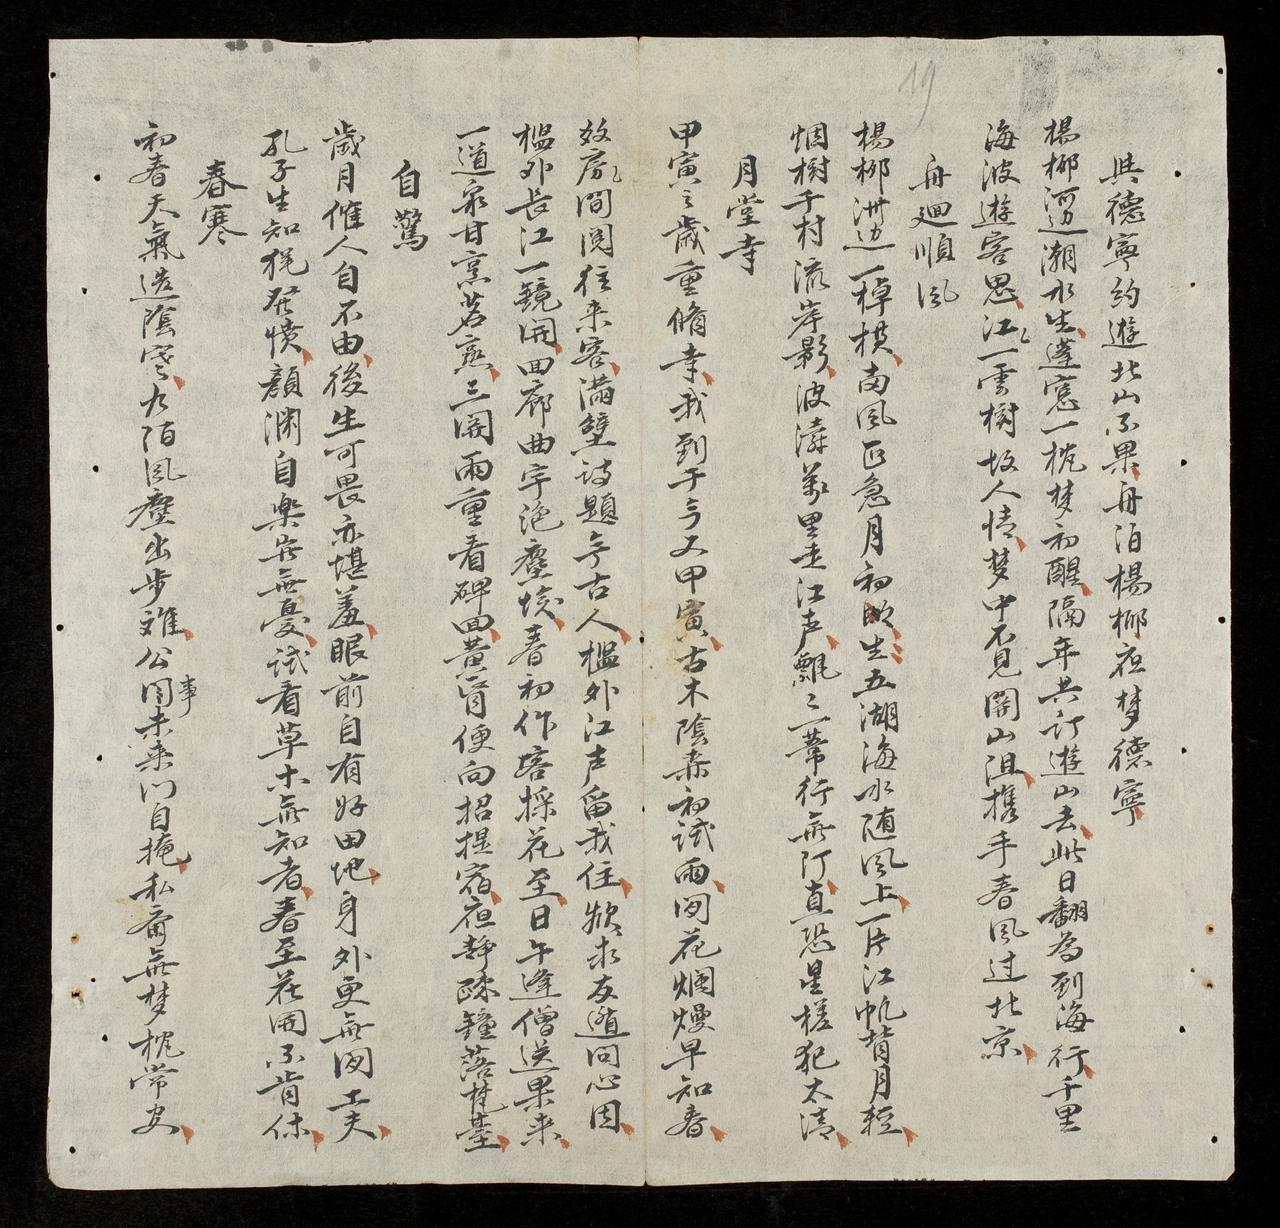 19
與德寧約遊北山不果舟泊楊柳夜梦德寧
楊柳河边潮水生蓬窓一枕梦初醒隔年共訂遊山去此日翻為到海行千里
海波遊客思江乀一雲樹故人情梦中不覚関山沮携手春風过北京
舟廻順风
楊柳洲边一棹横南风正急月初明生五湖海水随风上一片江帆背月輕
烟樹千村流岸影波濤萬里走江声飄〻一葦行無所直恐星槎犯太清
月堂寺
甲寅之歲重脩寺我到于今又甲寅古木陰柔初試雨閑花烟熳早知春
效房乀間閲往来客滿壁詩題今古人檻外江声留我住欲求友道同心因
檻外長江一鏡開回廊曲宇絶塵埃春初作客採花至日午逢僧送果来
一道泉甘烹茗熟三関雨重看碑回黄昏便向招提宿夜静疎鐘落梵臺
自驚
歲月催人自不由後生可畏亦堪羞眼前自有好田地身外更無閑工夫
孔子生知猶發憤顔渊自楽豈無憂試看草木無知者春至花開不肯休
春寒
初春天氣造陰寒九陌风塵出步难公同事未来门自掩私齋無梦枕常安